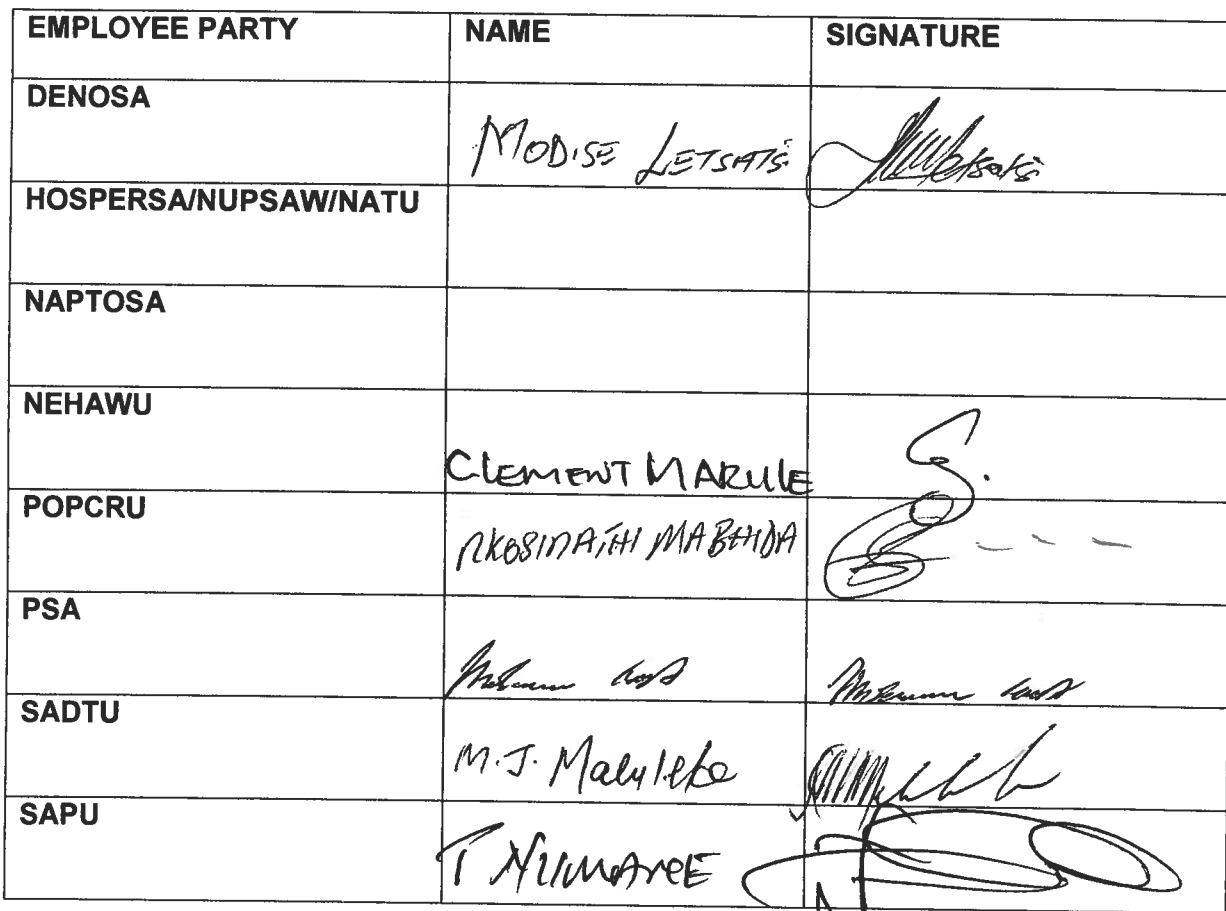 EMPLOYEE PARTY NAME SIGNATURE
DENOSA MODISE LETSATSI
HOSPERSA/NUPSAW/NATU
NAPTOSA
NEHAWU CLEMENT MARULE
POPCRU NKOSINATHI MABHIDA
PSA
SADTU M.J. Maluleke
SAPU T